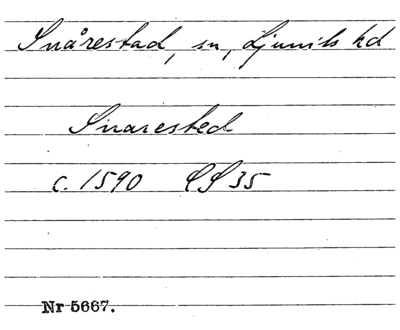 Snårestad, sn, Ljunits hd
Snarested
c. 1590 LS 35
Nr 5667.